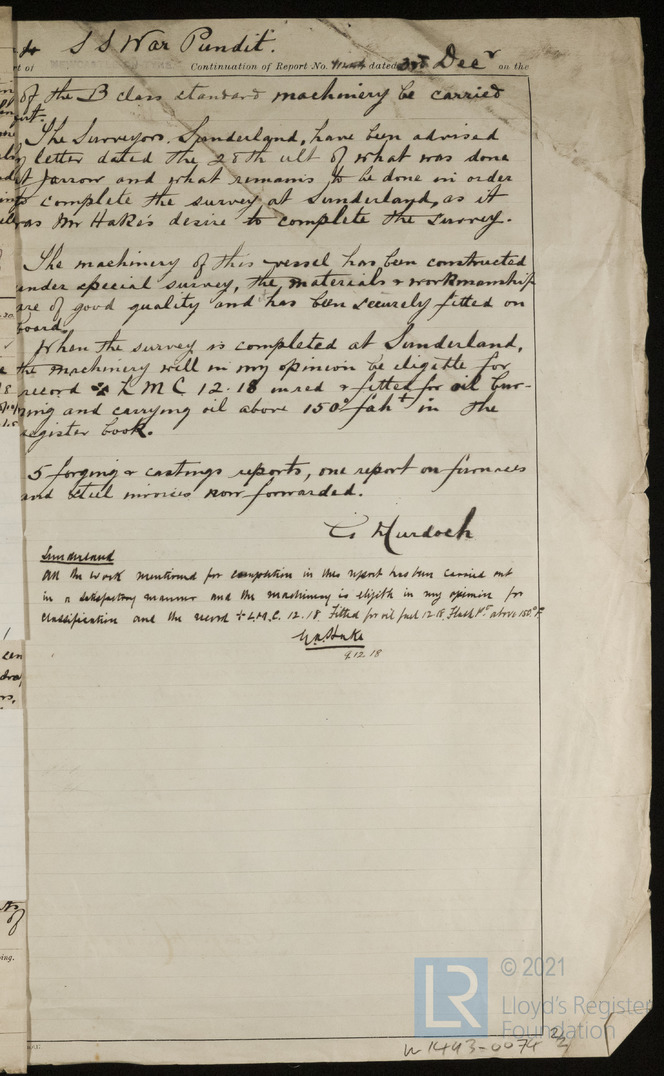 S S War Pundit.
Continuation of Report No. dated 3rd Decr on the
of the B class standard machinery be carried
The Surveyors, Sunderland, have been advised
letter dated the 28th ult of what was done
Jarrow and what remains to be done in order
to complete the survey at Sunderland, as it
was Mr Hake's desire to complete the survey.
The machinery of this vessel has been constructed
under special survey, the materials & workmanship
are of good quality and has been securely fitted on
board.
When the survey is completed at Sunderland,
the machinery will in my opinion be eligible for
record ✠ L M C 12.18 in red & fitted for oil bur-
ning and carrying oil above 150° fah t in the
register book.
5 forging & castings reports, one report on furnaces
and steel invoices now forwarded.
G Murdoch
Sunderland
All the work mentioned for completion in this report has been carried out
in a satisfactory manner and the machinery is eligible in my opinion for
classification and the record + L.M.C. 12.18. Fitted for oil fuel 12.18. Flash Pt above 150° F.
Wm Hake
9.12.18
© 2021
LR
Lloyd's Register
Foundation
W1493-0074 2/2